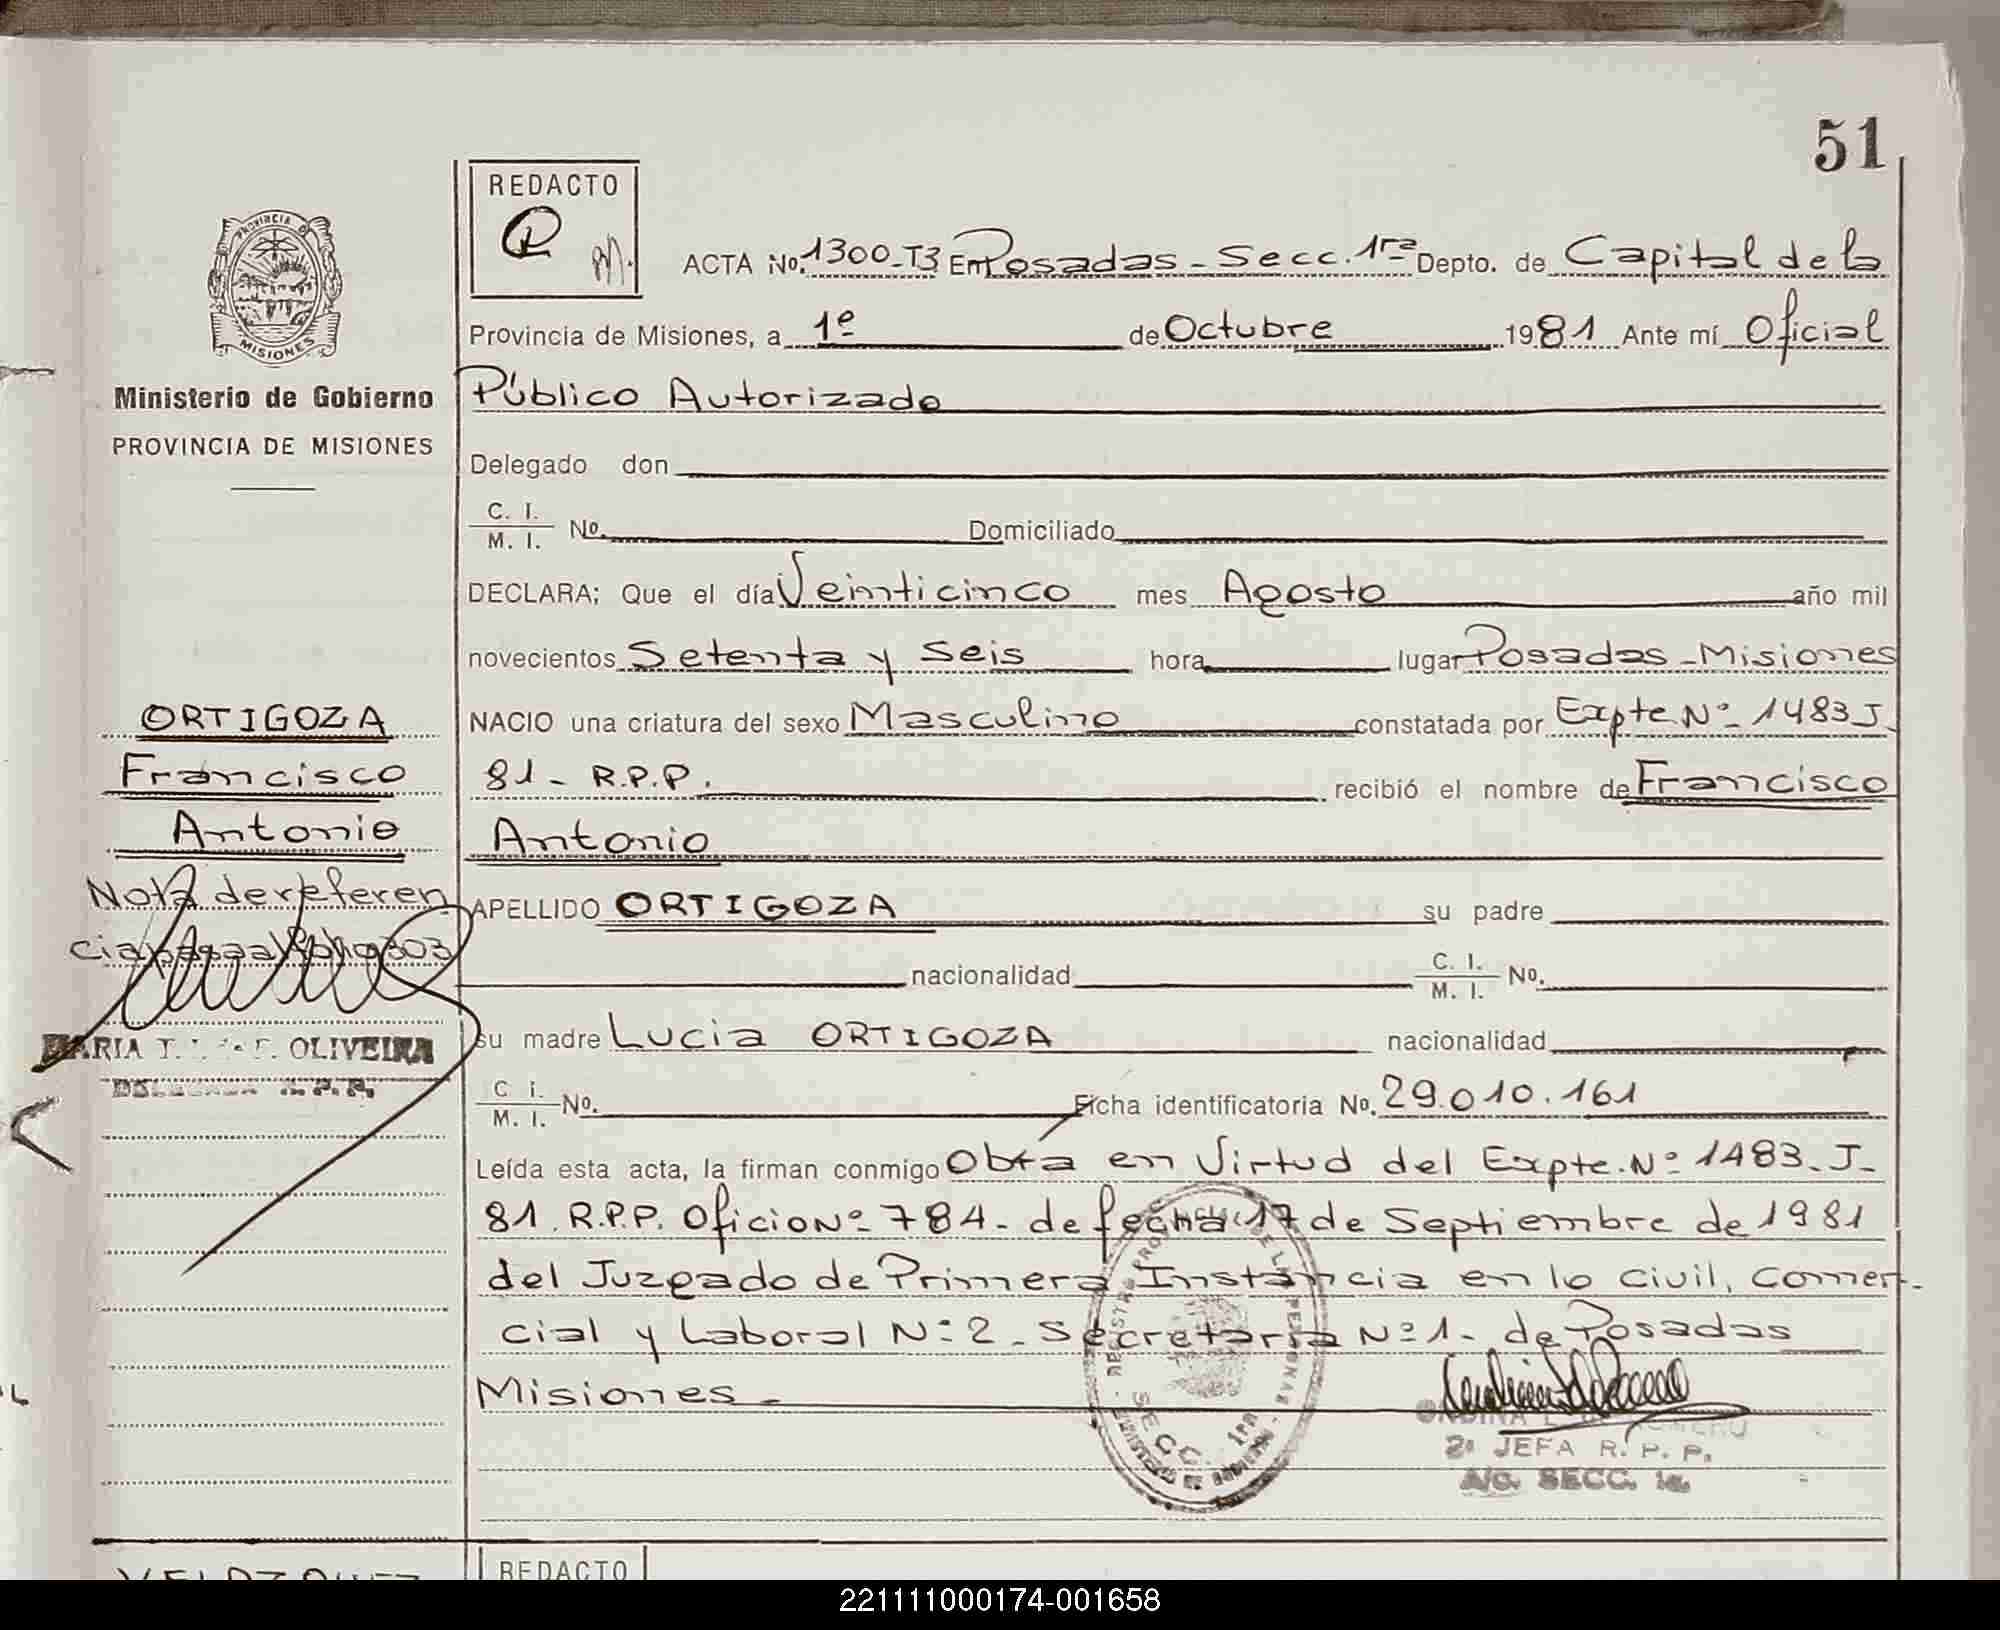 51
REDACTO
PROVINCIA D
MISIONES
Ministerio de Gobierno
PROVINCIA DE MISIONES
ACTA No. 1300-T3 En Posadas - Secc. 1ra Depto. de Capital de la
Provincia de Misiones, a 1º de Octubre 1981 Ante mí Oficial
Público Autorizado
Delegado don
C. I.
M. I. No. Domiciliado
DECLARA; Que el día Veinticinco mes Agosto año mil
novecientos Setenta y Seis hora lugar Posadas - Misiones
NACIO una criatura del sexo Masculino constatada por Expte Nº 1483 J.
81 - R.P.P. recibió el nombre de Francisco
Antonio
APELLIDO ORTIGOZA su padre
nacionalidad C. I.
M. I. No.
su madre Lucia ORTIGOZA nacionalidad
C i.
M. I. No. Ficha identificatoria No. 29.010.161
Leída esta acta, la firman conmigo Obra en Virtud del Expte. Nº 1483. J-
81. R.P.P. Oficio Nº 784 - de fecha 17 de Septiembre de 1981
del Juzgado de Primera Instancia en lo civil, Comer-
cial y Laboral Nº 2 - Secretaria Nº 1 - de Posadas
Misiones -
2º JEFA R. P. P.
A/C. SECC. 1a.
SECC. 1RA
ORTIGOZA
Francisco
Antonio
Nota de referen
cia pasa al folio 303
MARIA T. OLIVEIRA
REDACTO
VELAZQUEZ
221111000174-001658